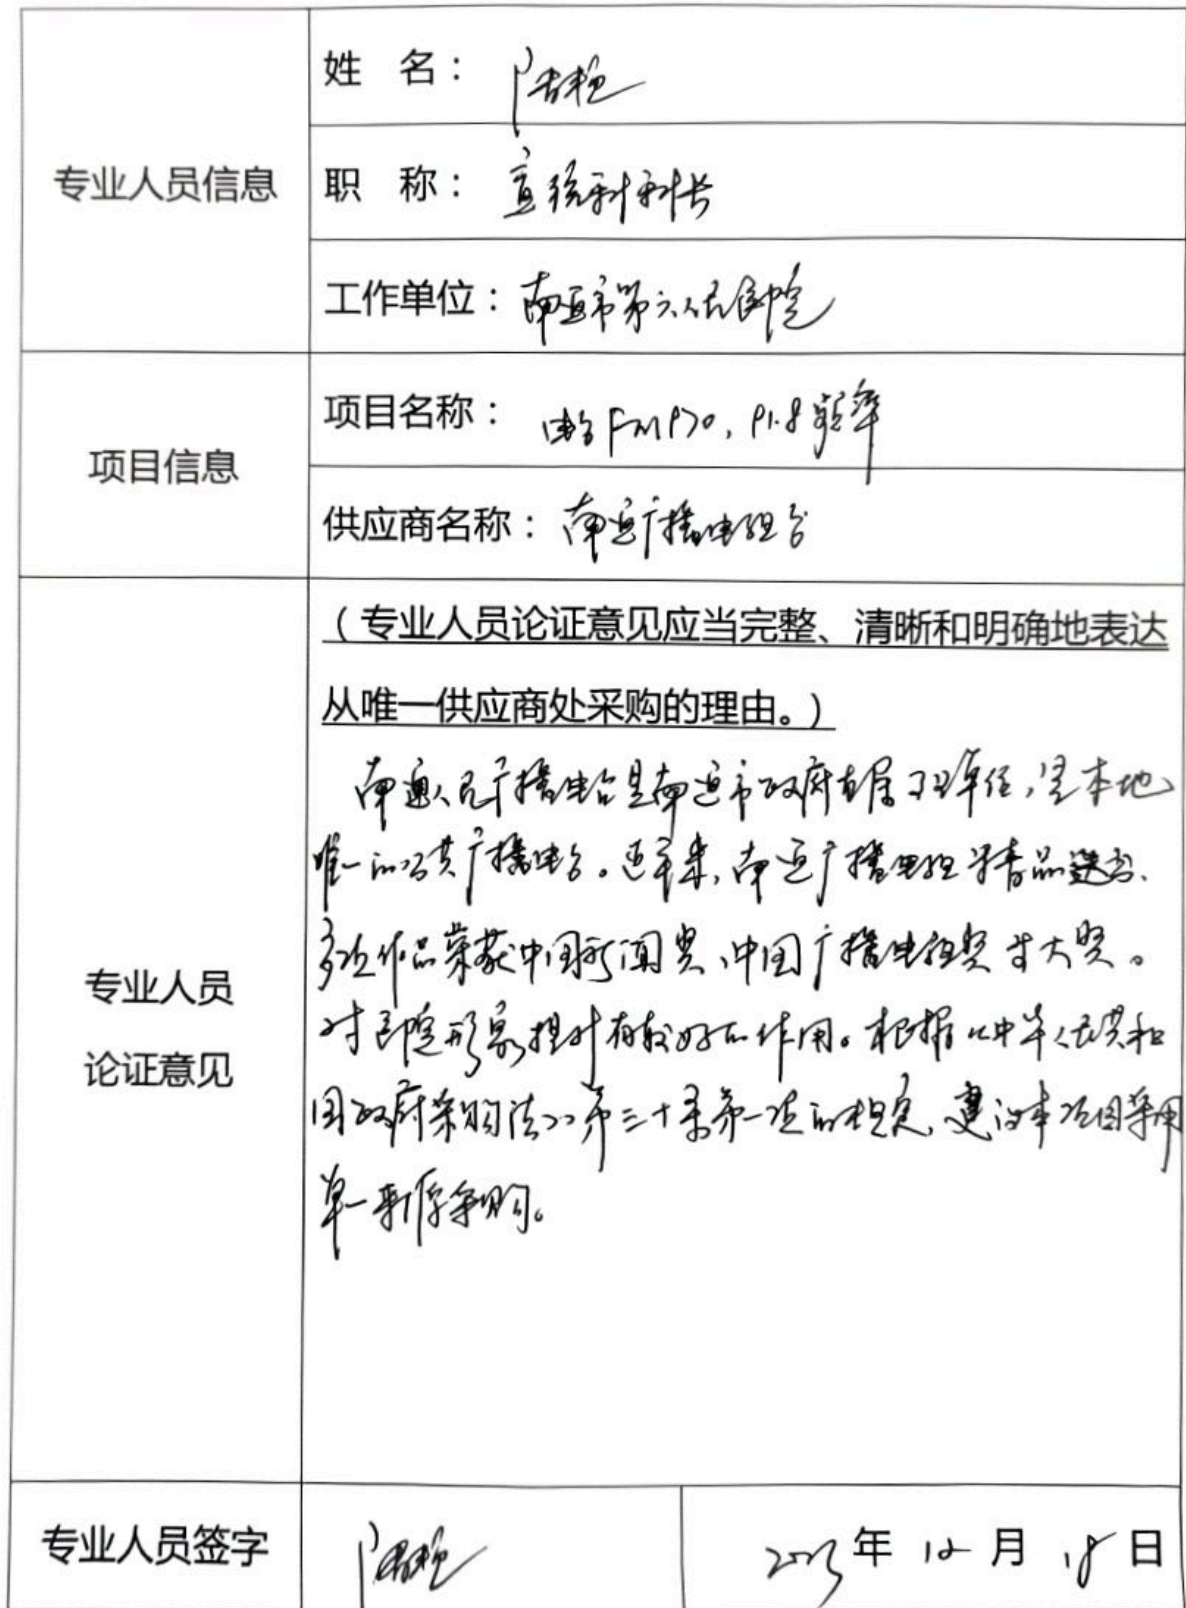 专业人员信息
姓 名：
职 称：宣统科科长
工作单位：南通市第六人民医院
项目信息
项目名称：电台FM97.0，91.8频率
供应商名称：南通广播电视台
专业人员
论证意见
（专业人员论证意见应当完整、清晰和明确地表达
从唯一供应商处采购的理由。）
南通人民广播电台是南通市政府直属 单位，是本地
唯一的公共广播电台。近年来，南通广播电视 精品迭出、
多次作品荣获中国新闻奖、中国广播电视奖等大奖。
对医院形象提升有较好的作用。根据《中华人民共和
国政府采购法》第三十一条第一项的规定，建议本项目采用
单一来源采购。
专业人员签字
年 12 月 18 日